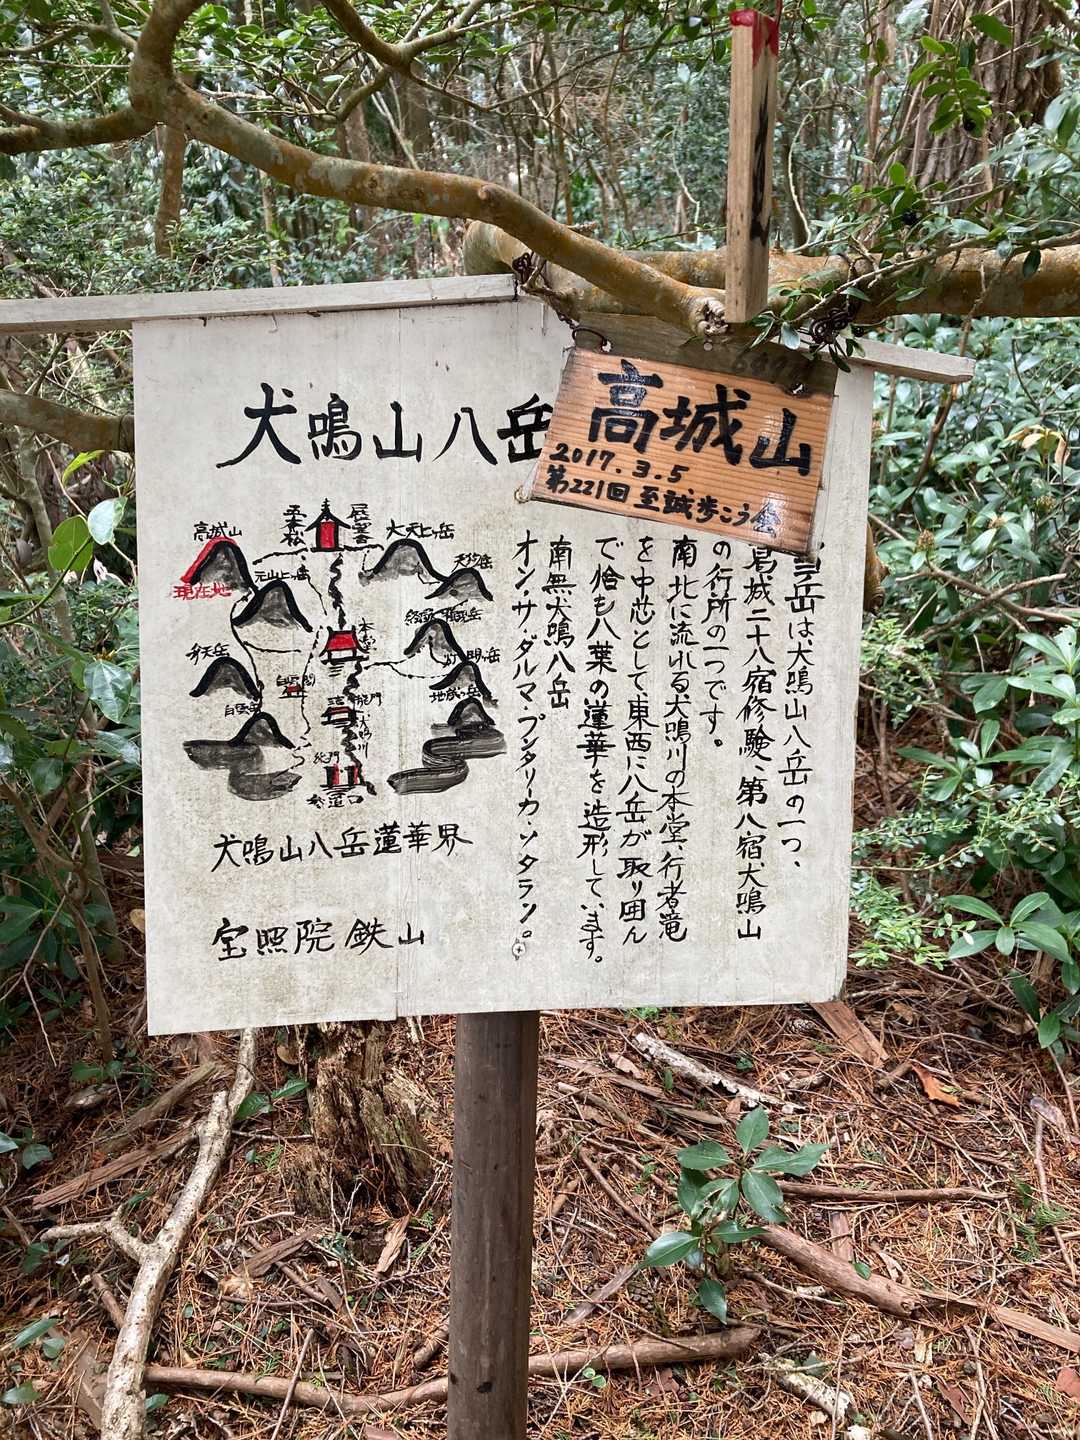 犬鳴山八岳
高城山
2017.3.5
第221回 至誠歩こう会
当岳は犬鳴山八岳の一つ、
葛城二十八宿修験、第八宿犬鳴山
の行所の一つです。
南北に流れる犬鳴川の本堂、行者滝
を中芯として、東西に八岳が取り囲ん
で恰も八葉の蓮華を造形しています。
南無犬鳴八岳
オン・サ・ダルマ・プンダリーカ・ソタラン。
高城山
現在地
元山上ヶ岳
弁天岳
大天上ヶ岳
本堂
犬鳴川
地蔵ヶ岳
灯明ヶ岳
犬鳴山八岳蓮華界
宝照院 鉄山